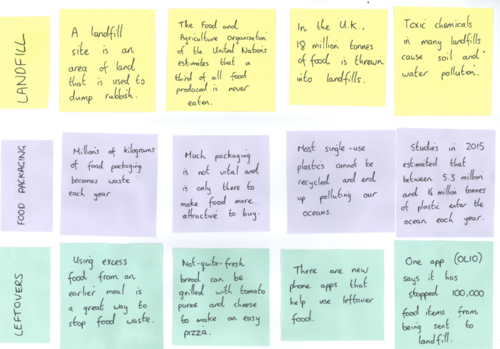 LANDFILL
A landfill
site is an
area of land
that is used to
dump rubbish.
The Food and
Agriculture Organisation
of the United Nations
estimates that a
third of all food
produced is never
eaten.
In the U.K.,
18 million tonnes
of food is thrown
into landfills.
Toxic chemicals
in many landfills
cause soil and
water pollution.
FOOD PACKAGING
Millions of kilograms
of food packaging
becomes waste
each year
Much packaging
is not vital and
is only there to
make food more
attractive to buy.
Most single-use
plastics cannot be
recycled and end
up polluting our
oceans.
Studies in 2015
estimated that
between 5.3 million
and 16 million tonnes
of plastic enter the
ocean each year.
LEFTOVERS
Using excess
food from an
earlier meal is
a great way to
stop food waste.
Not-quite-fresh
bread can be
grilled with tomato
puree and cheese
to make an easy
pizza.
There are new
phone apps that
help use leftover
food.
One app (OLIO)
says it has
stopped 100,000
food items from
being sent to
landfill.